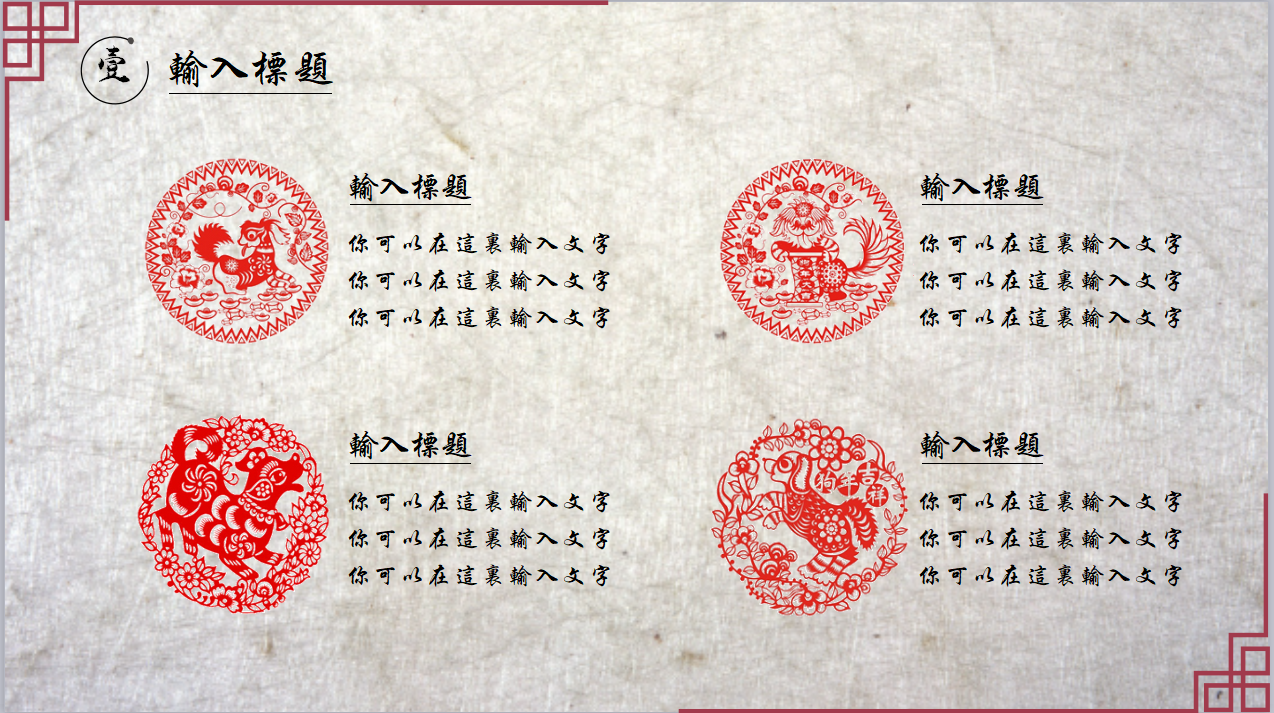 壹
輸入標題
輸入標題
你可以在這裏輸入文字
你可以在這裏輸入文字
你可以在這裏輸入文字
輸入標題
你可以在這裏輸入文字
你可以在這裏輸入文字
你可以在這裏輸入文字
輸入標題
你可以在這裏輸入文字
你可以在這裏輸入文字
你可以在這裏輸入文字
狗年吉祥
輸入標題
你可以在這裏輸入文字
你可以在這裏輸入文字
你可以在這裏輸入文字